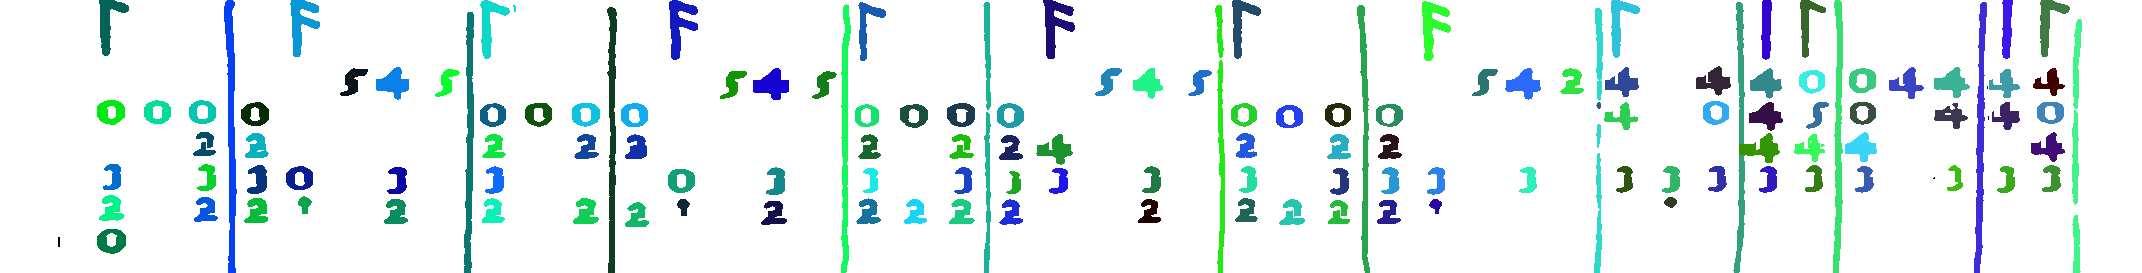 5 4 5 5 4 5 5 4 5 5 4 2 4 4 4 0 0 4 4 4 4
0 0 0 0 0 0 0 0 0 0 0 0 0 0 0 0 4 0 4 5 0 4 4 0
2 2 2 2 2 2 2 2 4 2 2 2 4 4 4 4
3 3 3 0 3 3 0 3 3 3 3 3 3 3 3 3 3 3 3 3 3 3 3 3 3 3 3
2 2 2 2 2 2 2 2 2 2 2 2 2 2 2 2 2
0